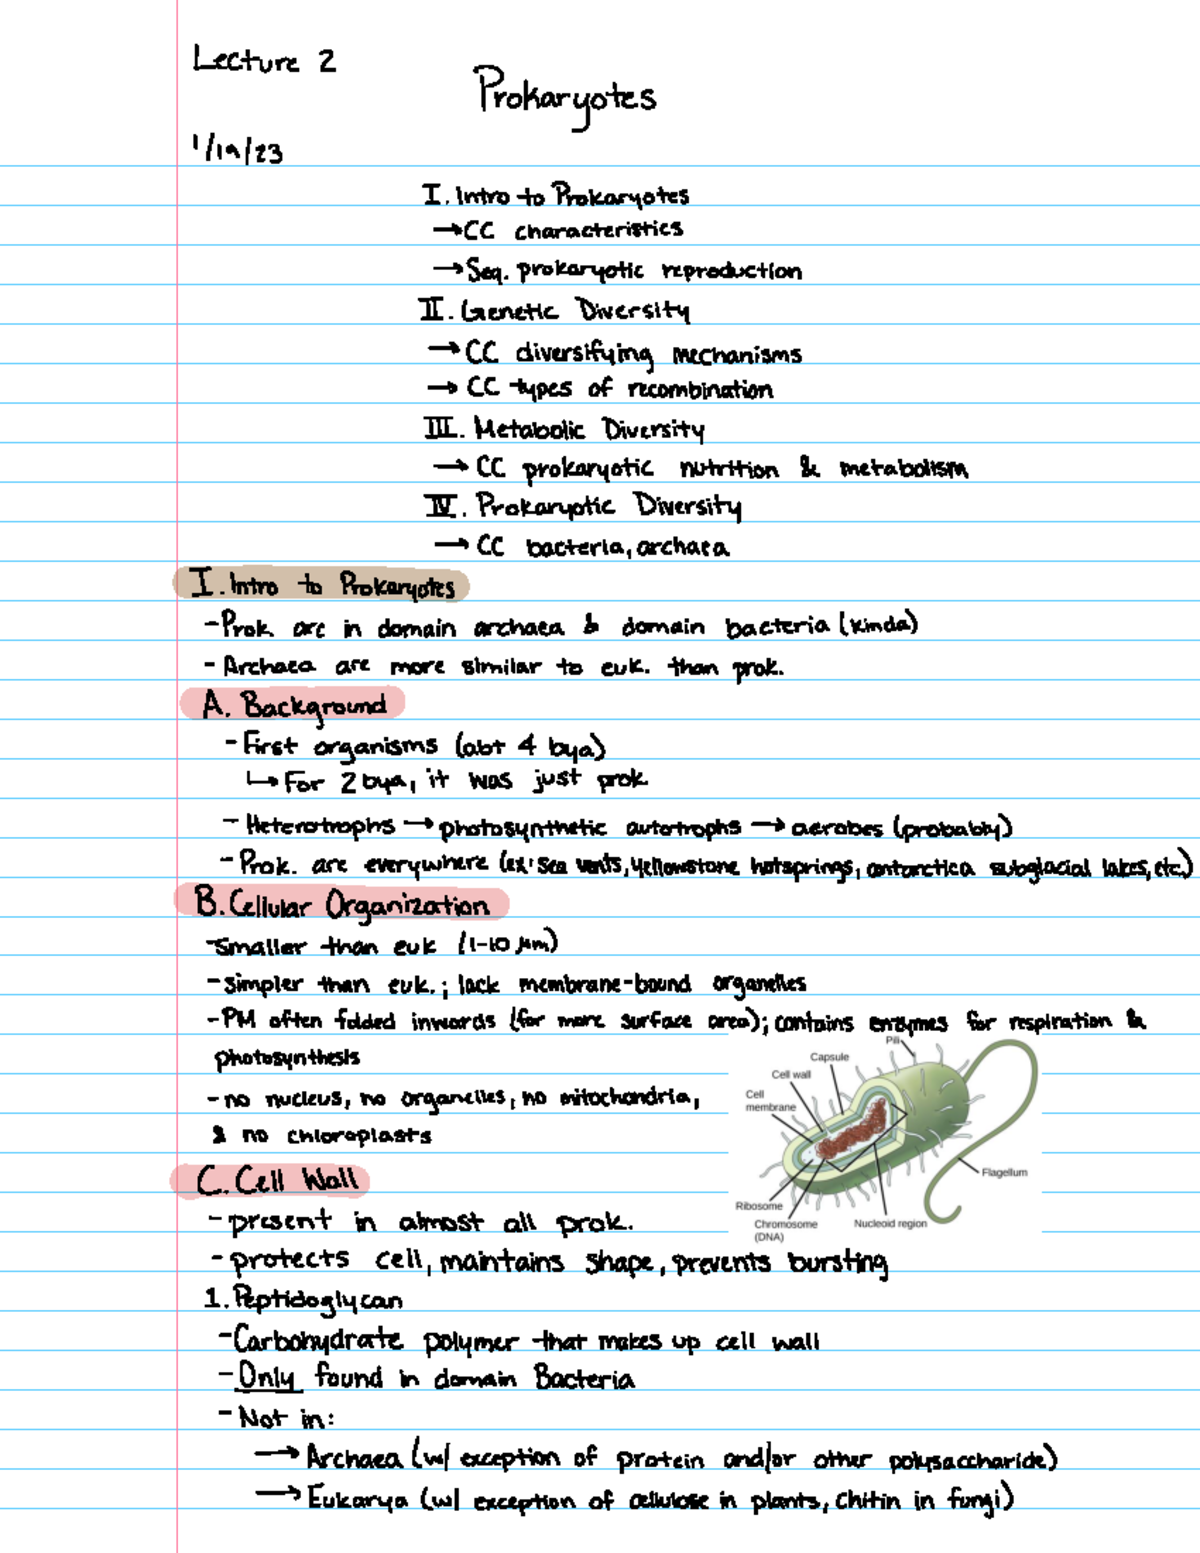 Lecture 2
Prokaryotes
1/19/23
I. Intro to Prokaryotes
→CC characteristics
→Seq. prokaryotic reproduction
II. Genetic Diversity
→CC diversifying mechanisms
→ CC types of recombination
III. Metabolic Diversity
→ CC prokaryotic nutrition & metabolism
IV. Prokaryotic Diversity
→ CC bacteria, archaea
I. Intro to Prokaryotes
-Prok. are in domain archaea & domain bacteria (kinda)
- Archaea are more similar to euk. than prok.
A. Background
- First organisms (abt 4 bya)
↳ For 2 bya, it was just prok
- Heterotrophs → photosynthetic autotrophs → aerobes (probably)
- Prok. are everywhere (ex: sea vents, yellowstone hotsprings, antarctica subglacial lakes, etc.)
B. Cellular Organization
-smaller than euk (1-10 µm)
-simpler than euk.; lack membrane-bound organelles
-PM often folded inwards (for more surface area); contains enzymes for respiration &
photosynthesis
- no nucleus, no organelles, no mitochondria,
& no chloroplasts
Pili
Capsule
Cell wall
Cell
membrane
Flagellum
Ribosome
Chromosome
(DNA)
Nucleoid region
C. Cell Wall
- present in almost all prok.
- protects cell, maintains shape, prevents bursting
1. Peptidoglycan
-Carbohydrate polymer that makes up cell wall
-Only found in domain Bacteria
- Not in:
→ Archaea (w/ exception of protein and/or other polysaccharide)
→ Eukarya (w/ exception of cellulose in plants, chitin in fungi)